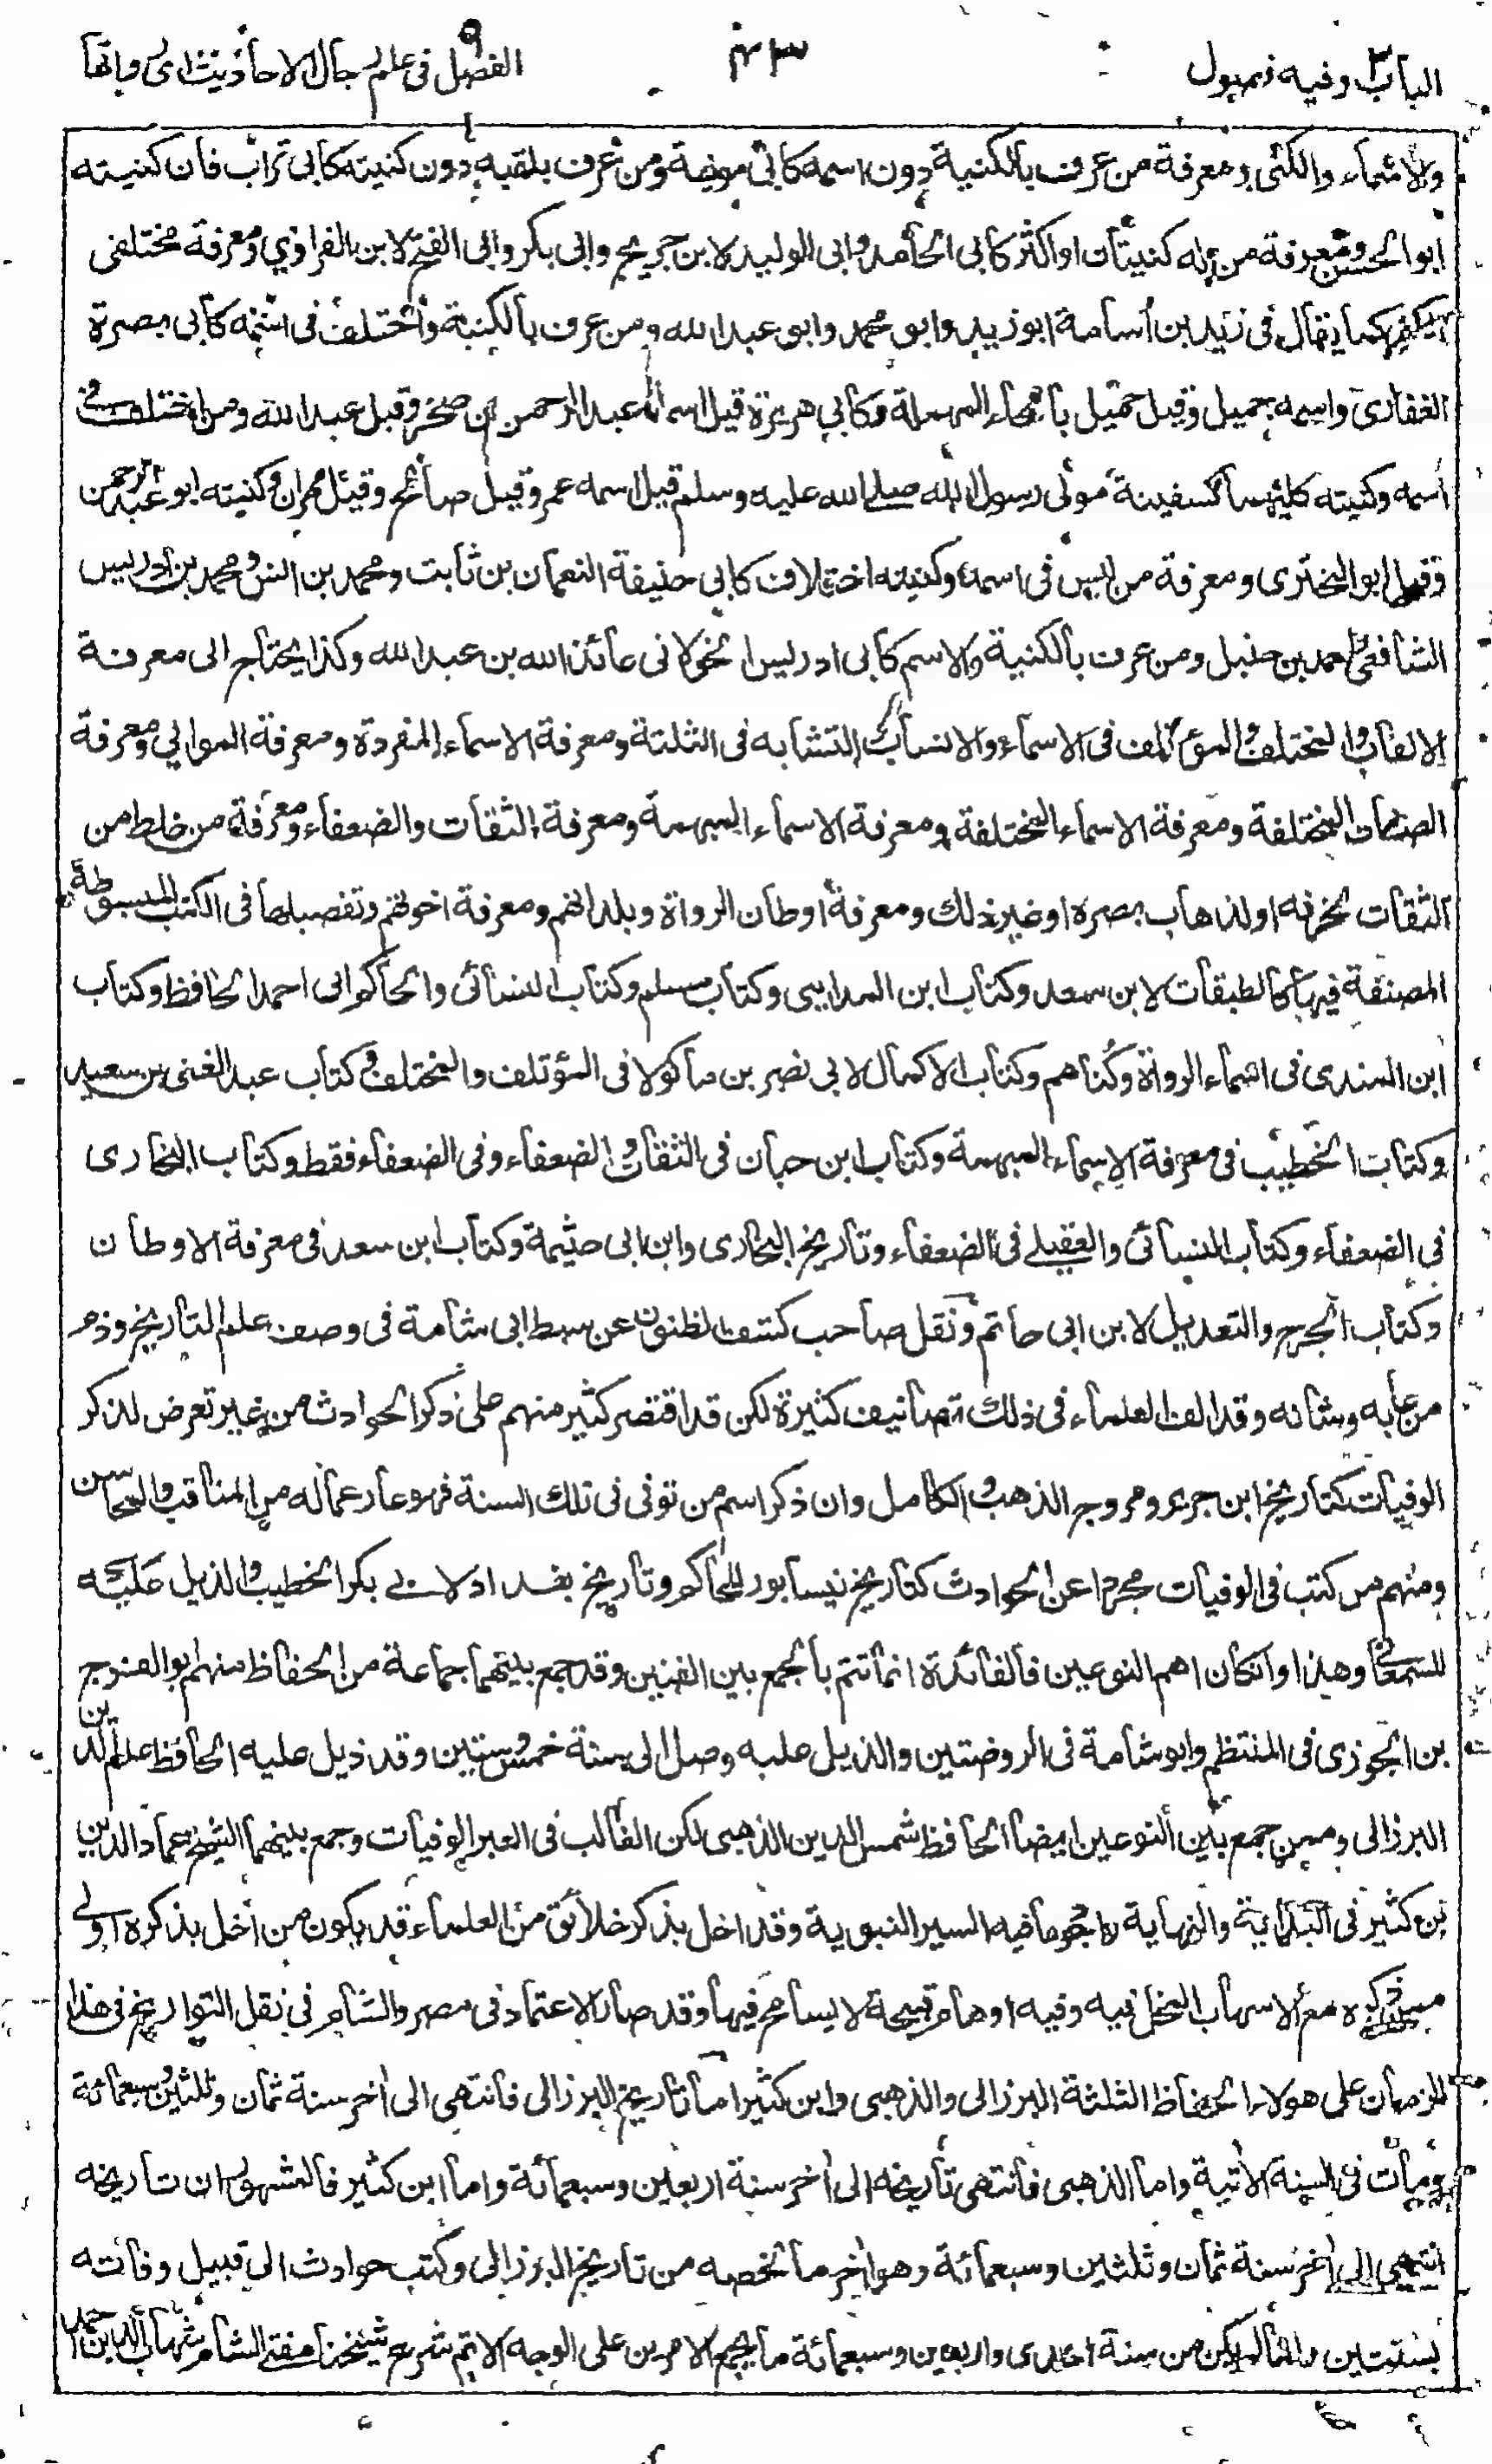 الباب ٢ وفيه فصول
٤٣
الفصل ٩ في علم رجال الاحاديث اى رواتها
والاسماء والكنى ومعرفة من عرف بالكنية دون اسمه كابى مويضة ومن عرف بلقبه دون كنيته كابى تراب فان كنيته
ابو الحسن ومعرفة من له كنيتان او اكثر كابى الخالد وابى الوليد لابن جريج وابى بكر وابى الفتح لابن الفراوي ومعرفة مختلفى
الكنى كما يقال فى زيد بن أسامة ابو زيد وابو محمد وابو عبد الله ومن عرف بالكنية واختلف فى اسمه كأبى بصرة
الغفارى واسمه جميل وقيل حميل بالحاء المهملة وكابي هريرة قيل اسمه عبد الرحمن بن صخر وقيل عبد الله ومن اختلف في
اسمه وكنيته كليهما كسفينة مولى رسول الله صلے الله عليه وسلم قيل اسمه عمر وقيل صالح وقيل مهران وكنيته ابو عبد الرحمن
وقيل ابو البختري ومعرفة من ليس فى اسمه وكنيته اختلاف كابى حنيفة النعمان بن ثابت ومحمد بن انس ومحمد بن ادريس
الشافعى واحمد بن حنبل ومن عرف بالكنية والاسم كأبى ادريس الخولانى عائذ الله بن عبد الله وكذا يحتاج الى معرفة
الالقاب والمختلف والمؤتلف فى الاسماء والانساب المتشابه فى الثلثة ومعرفة الاسماء المفردة ومعرفة الموالي ومعرفة
الصفات المختلفة ومعرفة الاسماء المختلفة ومعرفة الاسماء المبهمة ومعرفة الثقات والضعفاء ومعرفة من خلط من
الثقات لخرفه او لذهاب بصره او غير ذلك ومعرفة اوطان الرواة وبلدانهم ومعرفة اخوتهم وتفصيلها فى الكتب المبسوطة
المصنفة فيها كالطبقات لابن سعد وكتاب ابن المدايني وكتاب مسلم وكتاب النسائى والحاكم ابى احمد الحافظ وكتاب
ابن المندى فى اسماء الرواة وكُناهم وكتاب الاكمال لابى نصر بن ماكولا فى المؤتلف والمختلف وكتاب عبد الغنى بن سعيد
وكتاب الخطيب فى معرفة الاسماء المبهمة وكتاب ابن حبان فى الثقات والضعفاء وفى الضعفاء فقط وكتاب البخارى
فى الضعفاء وكتاب النسائى والعقيلے فى الضعفاء وتاريخ البخارى وابن ابى حثيمة وكتاب ابن سعد فى معرفة الاوطان
وكتاب الجرح والتعديل لابن ابى حاتم ونقل صاحب كشف الظنون عن سبط ابى شامة فى وصف علم التاريخ وذم
من عابه وشانه وقد الف العلماء فى ذلك تصانيف كثيرة لكن قد اقتصر كثير منهم على ذكر الحوادث من غير تعرض لذكر
الوفيات كتاريخ ابن جرير ومروج الذهب والكامل وان ذكر اسم من توفى فى تلك السنة فهو عار عماله من المناقب والمحاسن
ومنهم من كتب فى الوفيات مجردا عن الحوادث كتاريخ نيسابور للحاكم وتاريخ بغداد لابى بكر الخطيب والذيل عليه
للسمعانى وهذا وان كان اهم النوعين فالفائدة انما تتم بالجمع بين الفنين وقد جمع بينهما جماعة من الحفاظ منهم ابو الفرج
بن الجوزى فى المنتظم وابو شامة فى الروضتين والذيل عليه وصل الى سنة خمس وستين وقد ذيل عليه الحافظ علم الدين
البرزالى وممن جمع بين النوعين ايضا الحافظ شمس الدين الذهبى لكن الغالب فى العبر الوفيات وجمع بينهما الشيخ عماد الدين
بن كثير فى البداية والنهاية واجود ما فيه السير النبوية وقد اخل بذكر خلائق من العلماء قد يكون من اخل بذكره اولى
ممن ذكره مع الاسهاب المخل فيه وفيه اوهام قبيحة لا يسامح فيها وقد صار الاعتماد فى مصر والشام فى نقل التواريخ فى هذا
الزمان على هولاء الحفاظ الثلثة البرزالى والذهبى وابن كثير اما تاريخ البرزالى فانتهى الى اخر سنة ثمان وثلثين وسبعمائة
ومات فى السنة الاتية واما الذهبى فانتهى تاريخه الى اخر سنة اربعين وسبعمائة واما ابن كثير فالمشهور ان تاريخه
انتهى الى اخر سنة ثمان وثلثين وسبعمائة وهو اخر ما لخصه من تاريخ البرزالى وكتب حوادث الى قبيل وفاته
بسنتين ولما لم يكن من سنة احدى واربعين وسبعمائة ما يجمع الامرين على الوجه الاتم شرع شيخنا مفتى الشام شهاب الدين احمد